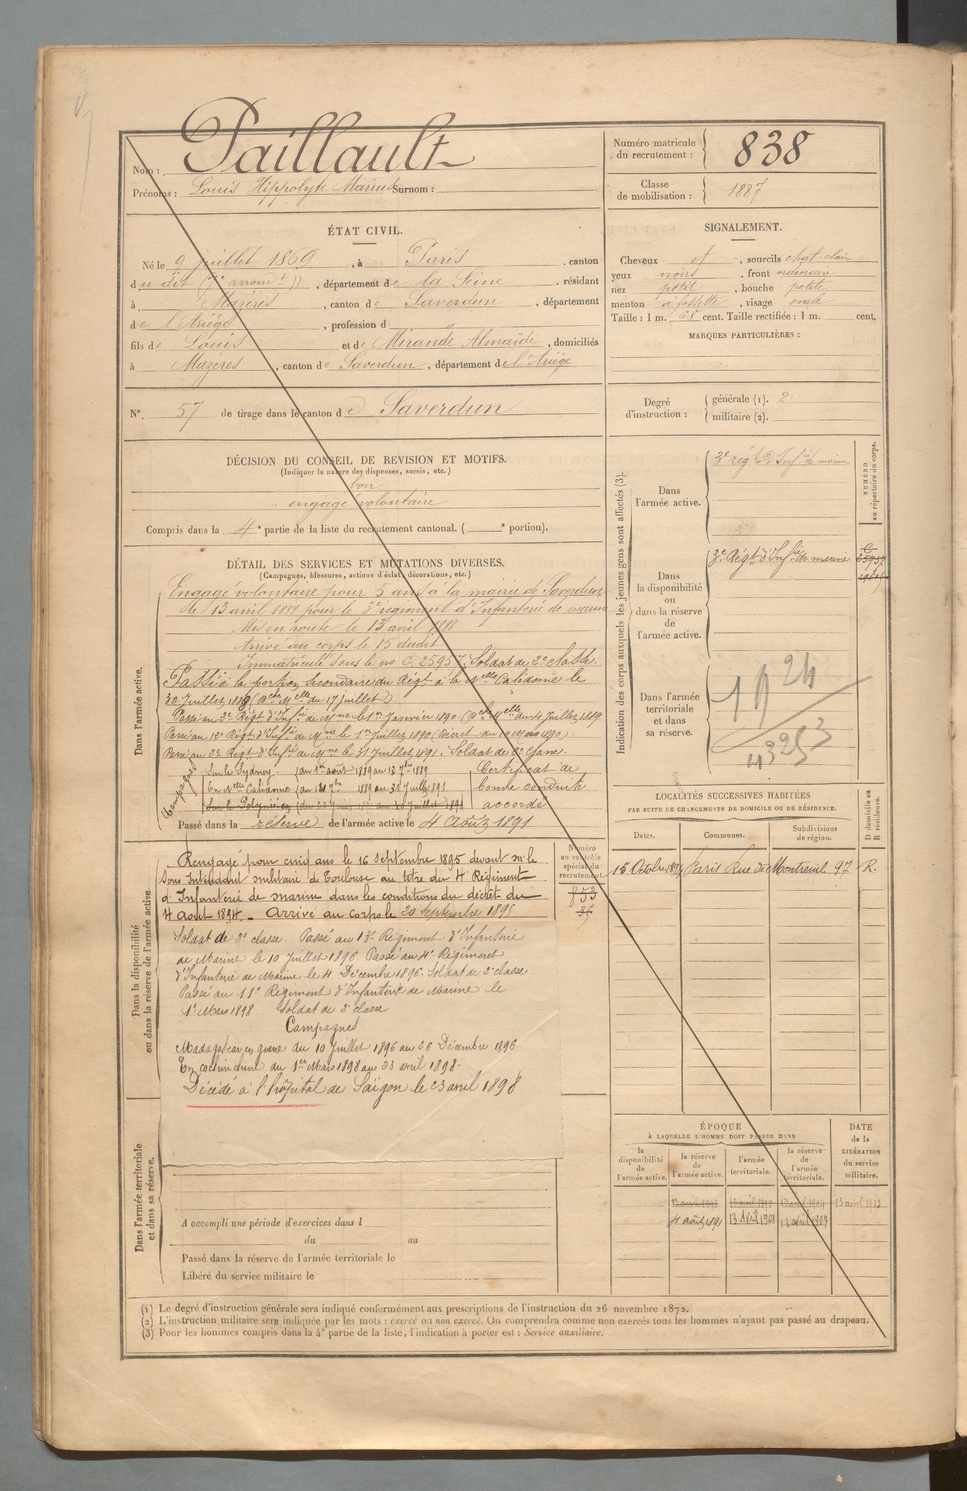 Nom : Paillault
Prénoms : Louis Hippolyte Marius Surnom :
Numéro matricule du recrutement : 838
Classe de mobilisation : 1887
ÉTAT CIVIL.
Né le 9 juillet 1869, à Paris, canton
du dit (7e arrondt), département de la Seine, résidant
à Mazères, canton de Saverdun, département
de l'Ariège, profession d
fils de Louis et de Mirande Almaïde, domiciliés
à Mazères, canton de Saverdun, département de l'Ariège
N°. 57 de tirage dans le canton de Saverdun
SIGNALEMENT.
Cheveux et, sourcils chât-clair
yeux noirs, front ordinaire
nez petit, bouche petite
menton à fossette, visage ovale
Taille : 1 m. 68 cent. Taille rectifiée : 1 m. cent.
MARQUES PARTICULIÈRES :
Degré d'instruction : générale (1). 2
militaire (2).
DÉCISION DU CONSEIL DE REVISION ET MOTIFS.
(Indiquer la nature des dispenses, sursis, etc.)
bon
engagé volontaire
Compris dans la 4e partie de la liste du recrutement cantonal. ( e portion).
DÉTAIL DES SERVICES ET MUTATIONS DIVERSES.
(Campagnes, blessures, actions d'éclat, décorations, etc.)
Dans l'armée active.
Engagé volontaire pour 5 ans à la mairie de Saverdun
le 13 avril 1888 pour le 3e regiment d'Infanterie de marine
Mis en route le 13 avril 1888
Arrivé au corps le 15 dudit
Immatriculé sous le no C. 25957. Soldat de 2e classe.
Passé à la portion secondaire du Régt à la Nelle Calédonie le
20 Juillet 1889 (Dche Mlle du 17 juillet)
Passé au 2e Régt d'Infie de Mne le 1er Janvier 1890 (Dche Mlle du 4 Juillet 1889
Passé au 12e Régt d'Infie de Mne le 1er Juillet 1890 (Décret du 10 Mars 1890).
Passé au 2e Régt d'Infie de Mne le 31 Juillet 1891. Soldat de 2e classe.
Campagnes
Sur le Sydney (du 1er août 1889 au 13 7bre 1889
En Nelle Calédonie (du 14 7bre 1889 au 31 Juillet 1891
Certificat de
bonne conduite
accordé
Passé dans la réserve de l'armée active le 4 Août 1891
Dans la disponibilité ou dans la réserve de l'armée active
Rengagé pour cinq ans le 16 Septembre 1895 devant mr le
Sous Intendant militaire de Toulouse au titre du 4e Régiment
d'Infanterie de marine dans les conditions du décret du
4 août 1894. - Arrivé au corps le 20 Septembre 1895
Soldat de 2e classe Passé au 13e Régiment d'Infanterie
de Marine le 10 Juillet 1896 Passé au 4e Régiment
d'Infanterie de Marine le 4 Décembre 1896. Soldat de 2e classe
Passé au 11e Régiment d'Infanterie de Marine le
1er Mars 1898 Soldat de 2e classe
Campagnes
Madagascar en guerre du 10 Juillet 1896 au 26 Décembre 1896
En cochinchine du 1er Mars 1898 au 23 avril 1898.
Décédé à l'hôpital de Saïgon le 23 avril 1898
Numéro au contrôle spécial du recrutement.
853
Dans l'armée territoriale et dans sa réserve.
A accompli une période d'exercices dans l
du au
Passé dans la réserve de l'armée territoriale le
Libéré du service militaire le
Indication des corps auxquels les jeunes gens sont affectés (3).
NUMÉRO au répertoire du corps.
Dans l'armée active.
3e régt d'Infie de marine
Dans la disponibilité ou dans la réserve de l'armée active.
3e Régt d'Infie de marine
C
25957
Dans l'armée territoriale et dans sa réserve.
1924
43253
LOCALITÉS SUCCESSIVES HABITÉES
PAR SUITE DE CHANGEMENTS DE DOMICILE OU DE RÉSIDENCE.
D domicile ou R résidence.
Dates. Communes. Subdivisions de région.
15 Octobre 1894 Paris Rue de Montreuil 97 R.
ÉPOQUE
À LAQUELLE L'HOMME DOIT PASSER DANS
la disponibilité de l'armée active.
la réserve de l'armée active.
l'armée territoriale.
la réserve de l'armée territoriale.
DATE de la LIBÉRATION du service militaire.
13 avril 1893 13 avril 1913
4 août 1891 13 Avril 1901 13 avril 1907
(1) Le degré d'instruction générale sera indiqué conformément aux prescriptions de l'instruction du 26 novembre 1872.
(2) L'instruction militaire sera indiquée par les mots : exercé ou non exercé. On comprendra comme non exercés tous les hommes n'ayant pas passé au drapeau.
(3) Pour les hommes compris dans la 4e partie de la liste, l'indication à porter est : Service auxiliaire.